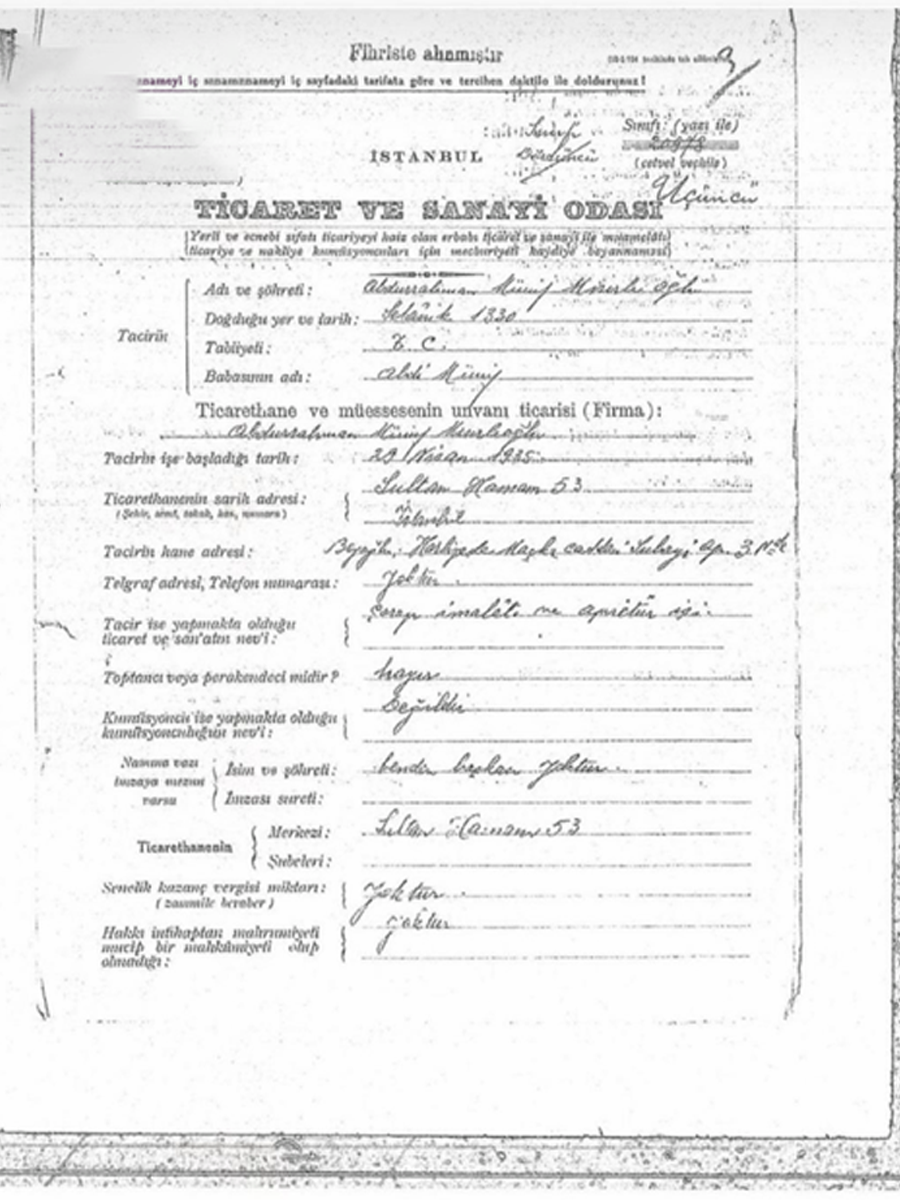 Fihriste alınmıştır
nameyi iç sayfadaki tarifata göre ve tercihen daktilo ile doldurunuz!
Sınıfı: (yazı ile)
Dördüncü
İSTANBUL
(cetvel veçhile)
Üçüncü
TİCARET VE SANAYİ ODASI
Yerli ve ecnebi sıfatı ticariyeyi haiz olan erbabı ticaret ve sanayi ile muamelâtı
ticariye ve nakliye kumüsyoncuları için mecburiyeti kaydiye beyannamesi
Tacirin
Adı ve şöhreti: Abdurrahman Münif
Doğduğu yer ve tarih: Selânik 1330
Tabiiyeti: T. C.
Babasının adı: Abdi Münif
Ticarethane ve müessesenin unvanı ticarisi (Firma):
Abdurrahman Münif
Tacirin işe başladığı tarih: 29 Nisan 1935
Ticarethanenin sarih adresi: Sultan Hamam 53
(Şehir, semt, sokak, han, numara) İstanbul
Tacirin hane adresi: Beyoğlu, Harbiyede Maçka caddesi
Telgraf adresi, Telefon numarası: Yoktur.
Tacir ise yapmakta olduğu çorap imalâtı ve apretür işi.
ticaret ve san'atın nev'i:
Toptancı veya perakendeci midir? hayır
Kumüsyoncu ise yapmakta olduğu Değildir
kumüsyonculuğun nev'i:
Namına vazı
imzaya mezun
varsa
İsim ve şöhreti: benden başkası yoktur.
İmzası sureti:
Ticarethanenin
Merkezi: Sultan Hamam 53
Şubeleri:
Senelik kazanç vergisi miktarı: Yoktur.
(zammile beraber)
Hakkı intihaptan mahrumiyeti yoktur
mucip bir mahkûmiyeti olup
olmadığı: